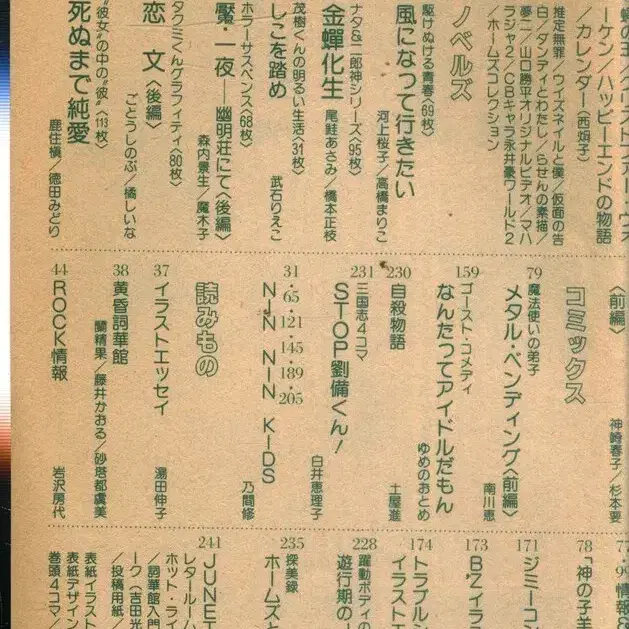 ーケン／ハッピーエンドの物語
／カレンダー（西炯子）
推定無罪／ウイズネイルと僕／仮面の告
白／ダンディとわたし／らせんの素描／
夢二／山口勝平オリジナルビデオ／マハ
ラジャ2／CBキャラ永井豪ワールド2
／ホームズコレクション
ノベルズ
駆けぬける青春〈69枚〉
風になって行きたい
河上桜子／高橋まりこ
ナタ&二郎神シリーズ〈95枚〉
金蟬化生
尾鮭あさみ／橋本正枝
茂樹くんの明るい生活〈31枚〉
しこを踏め
武石りえこ
ホラーサスペンス〈68枚〉
魘・一夜―幽明荘にて〈後編〉
森内景生／魔木子
タクミくんグラフィティ〈80枚〉
恋文〈後編〉
ごとうしのぶ／橘しいな
“彼女”の中の“彼”〈113枚〉
死ぬまで純愛
鹿住槇／徳田みどり
〈前編〉
神崎春子／杉本要
コミックス
79
魔法使いの弟子
メタル・ベンディング〈前編〉
南川恵
159
ゴースト・コメディ
なんたってアイドルだもん
ゆめのおとめ
230
自殺物語
土屋進
231
三国志4コマ
STOP劉備くん！
白井恵理子
31・65・121・145・189・205
NIN NIN KIDS
乃間修
読みもの
37
イラストエッセイ
湯田伸子
38
黄昏詞華館
蘭精果／藤井かおる／砂塔都虞美
44
ROCK情報
岩沢房代
77・99
情報&
78
「神の子羊
171
ジミーコン
173
B'Zイラ
174
トラブルシ
イラストエ
228
躍動ボディの
遊行期の
235
探美録
ホームズと
241
JUNE
レタールーム
ホット・ライ
／詞華館入門
ーク（吉田光
／投稿用紙／
表紙イラスト
表紙デザイン
巻頭4コマ／